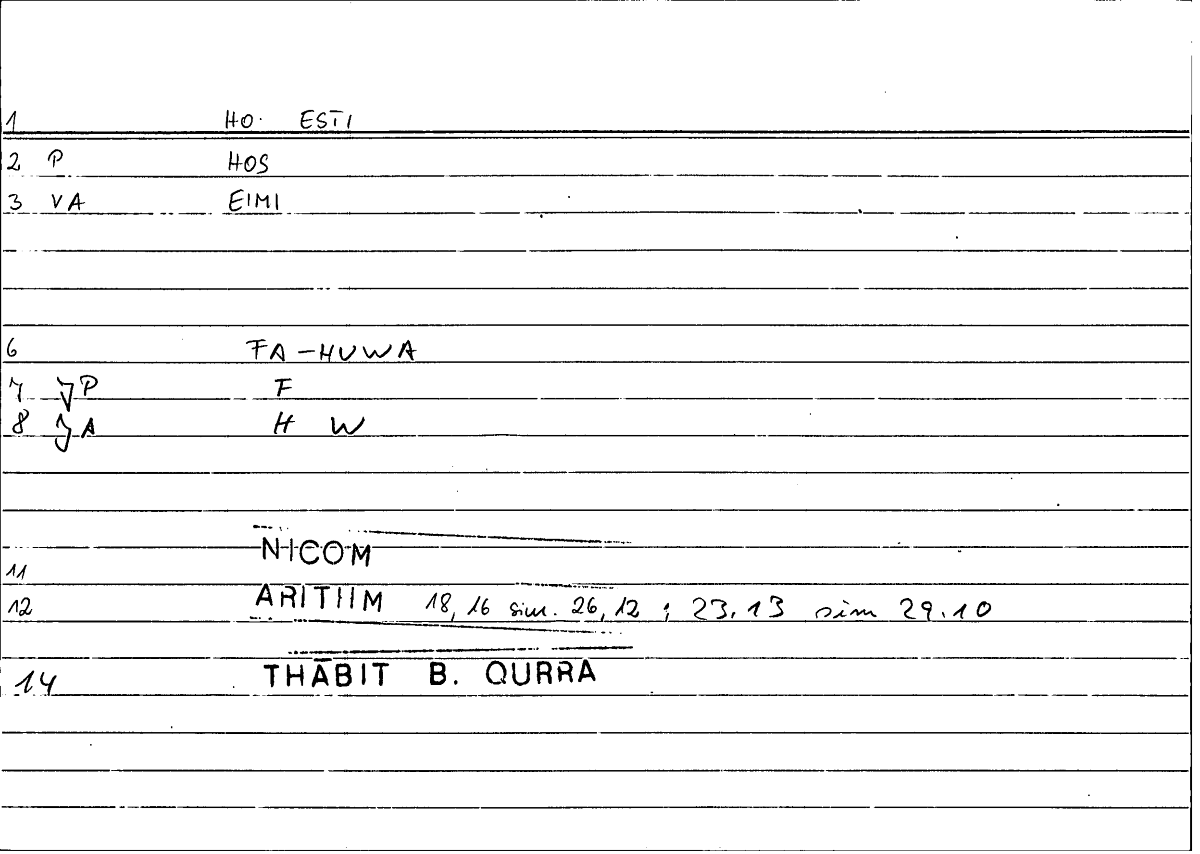 1 HO. ESTI
2 P HOS
3 VA EIMI
6 FA-HUWA
7 JP F
8 JA H W
11 NICOM
12 ARITIIM 18,16 sim. 26,12 ; 23.13 sim 29.10
14 THĀBIT B. QURRA